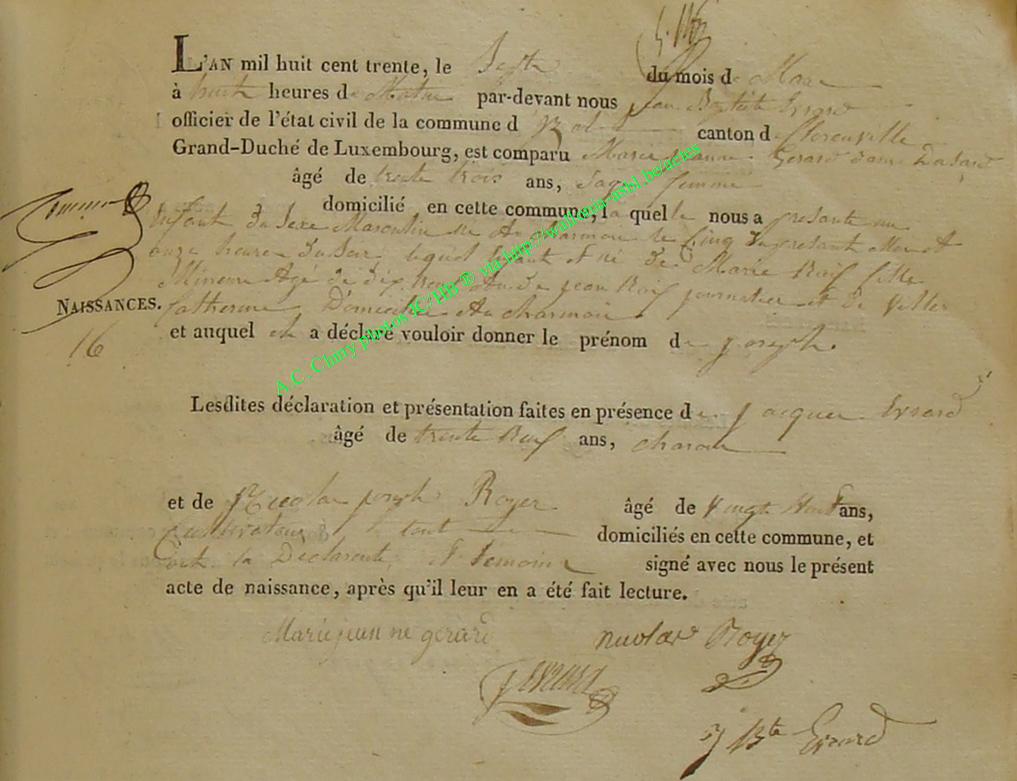 L'AN mil huit cent trente, le Sept du mois de Mars
à huit heures de Matin par-devant nous jean Baptiste Evrard
officier de l'état civil de la commune d canton de florenville
Grand-Duché de Luxembourg, est comparu Marie jeanne Gerard dame Dasard
âgé de trente trois ans, Sage femme
domicilié en cette commune, laquelle nous a presanté un
Enfant du Sexe Masculin né Au charmoi le Cinq du presant Moi A
onze heure Du Soir lequel Enfant Et né De Marie fille
Mineure Agé De dix Neuf An De jean journalier et De
NAISSANCES. Catherine Domicilié Au charmoi
16 et auquel elle a déclaré vouloir donner le prénom de joseph.
Lesdites déclaration et présentation faites en présence de jacque Evrard
âgé de trente Neuf ans, charon
et de Nicolas joseph Royer âgé de Vingt ans,
Cultivateur le tout domiciliés en cette commune, et
ont la Déclarente Et temoins signé avec nous le présent
acte de naissance, après qu'il leur en a été fait lecture.
Marie jean ne gerard nicolas Royer
j evrard
j Bte Evrard
A.C. Chiny photos IC/HB ® via http://wallonia-asbl.be/actes